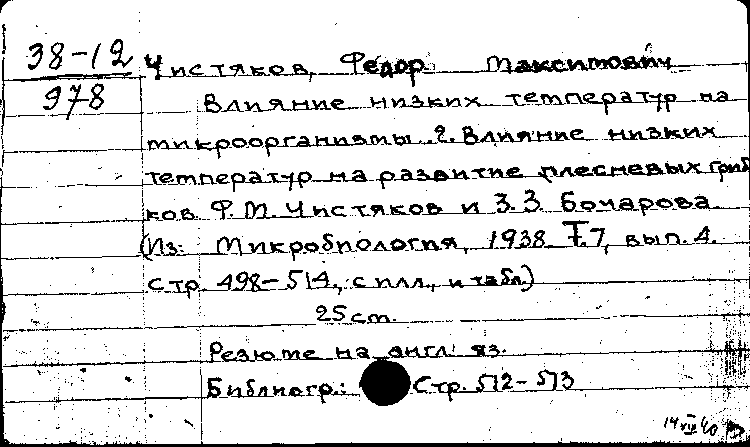 38-12
978
Чистяков, Федор Максимович
Влияние низких температур на
микроорганизмы. 2. Влияние низких
температур на развитие плесневых гриб
ков. Ф. М. Чистяков и З. З. Бочарова
(Из: Микробиология, 1938 Т. 7, вып. 4.
Стр. 498-514, с илл., и табл.)
25 cm.
Резюме на англ. яз.
Библиогр.: Стр. 512-513
14 VII 40